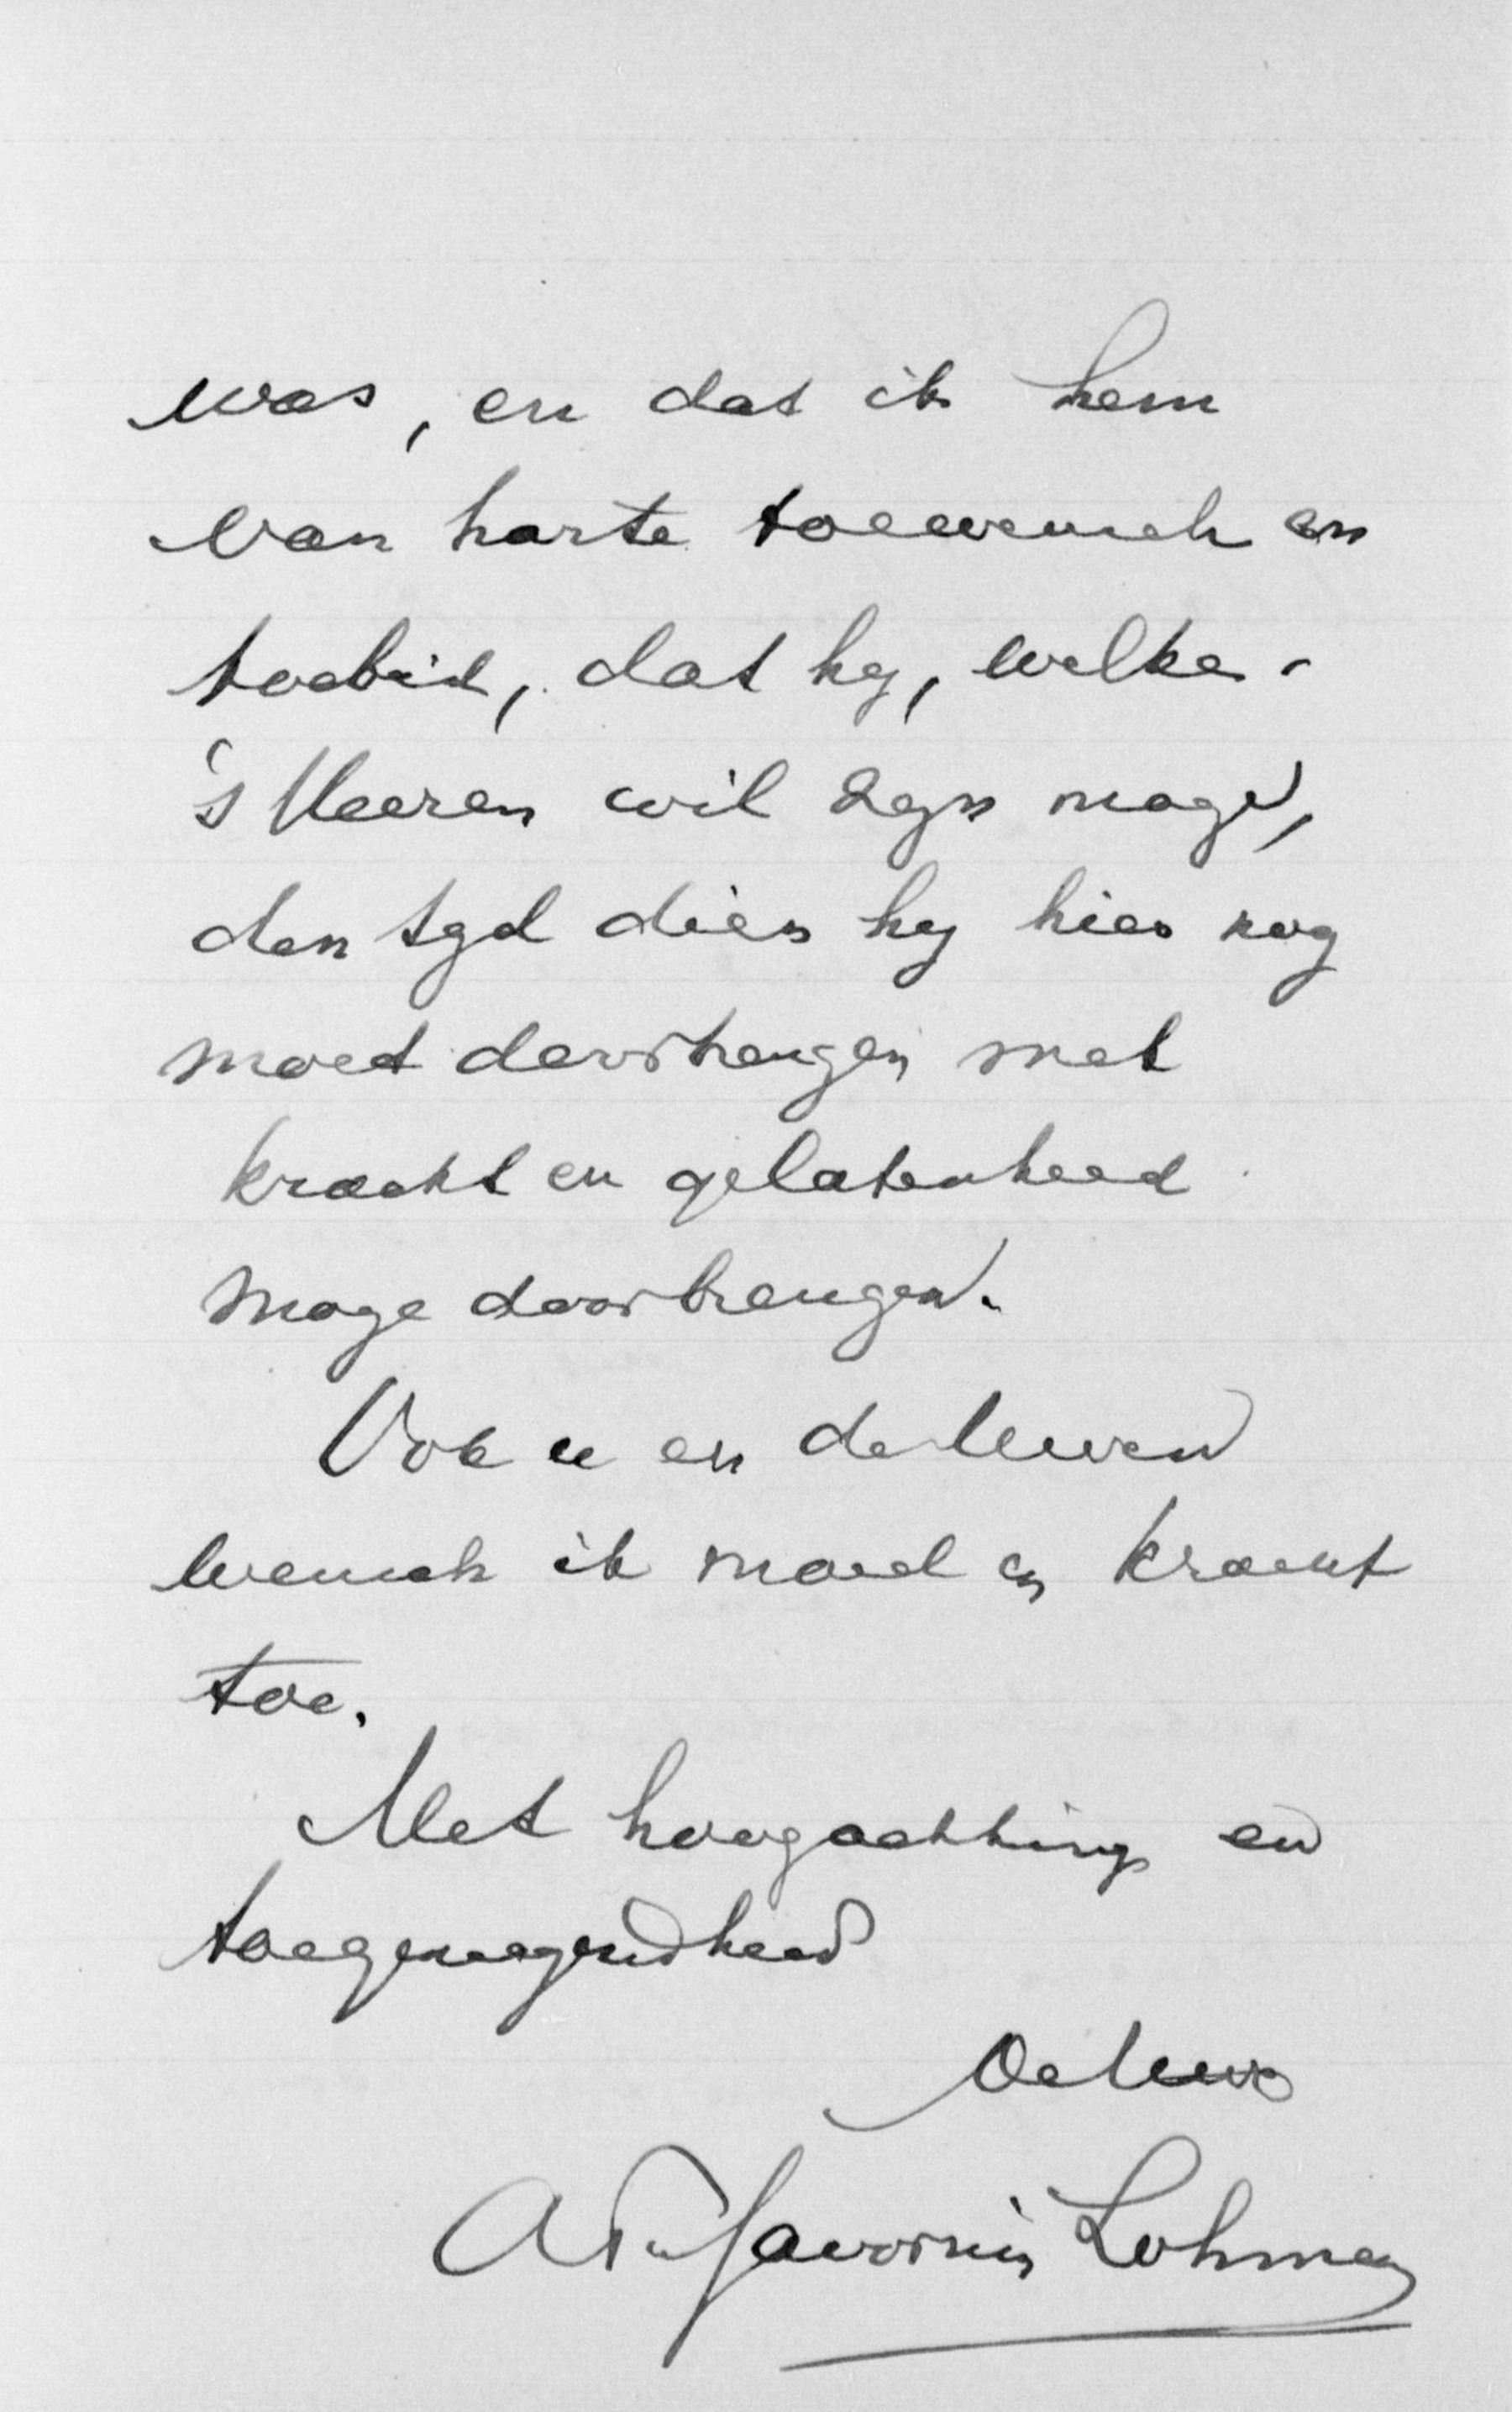 was, en dat ik hem
van harte toewensch en
toebid, dat hij, welke
's Heeren wil zijn moge,
den tijd dien hij hier nog
moet doorbrengen met
kracht en gelatenheid
moge doorbrengen.
Ook u en de Uwen
wensch ik moed en kracht
toe.
Met hoogachting en
toegenegendheid
de Uwe
AF de Savornin Lohman